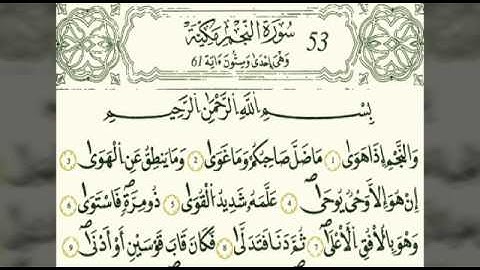 سُورَةُ النَّجْمِ مَكِّيَّةٌ 53
وَهِيَ إِحْدَىٰ وَسِتُّونَ ءَايَةً 61
بِسْمِ اللَّهِ الرَّحْمَٰنِ الرَّحِيمِ
وَالنَّجْمِ إِذَا هَوَىٰ 1 مَا ضَلَّ صَاحِبُكُمْ وَمَا غَوَىٰ 2 وَمَا يَنطِقُ عَنِ الْهَوَىٰ 3
إِنْ هُوَ إِلَّا وَحْيٌ يُوحَىٰ 4 عَلَّمَهُ شَدِيدُ الْقُوَىٰ 5 ذُو مِرَّةٍ فَاسْتَوَىٰ 6
وَهُوَ بِالْأُفُقِ الْأَعْلَىٰ 7 ثُمَّ دَنَا فَتَدَلَّىٰ 8 فَكَانَ قَابَ قَوْسَيْنِ أَوْ أَدْنَىٰ 9